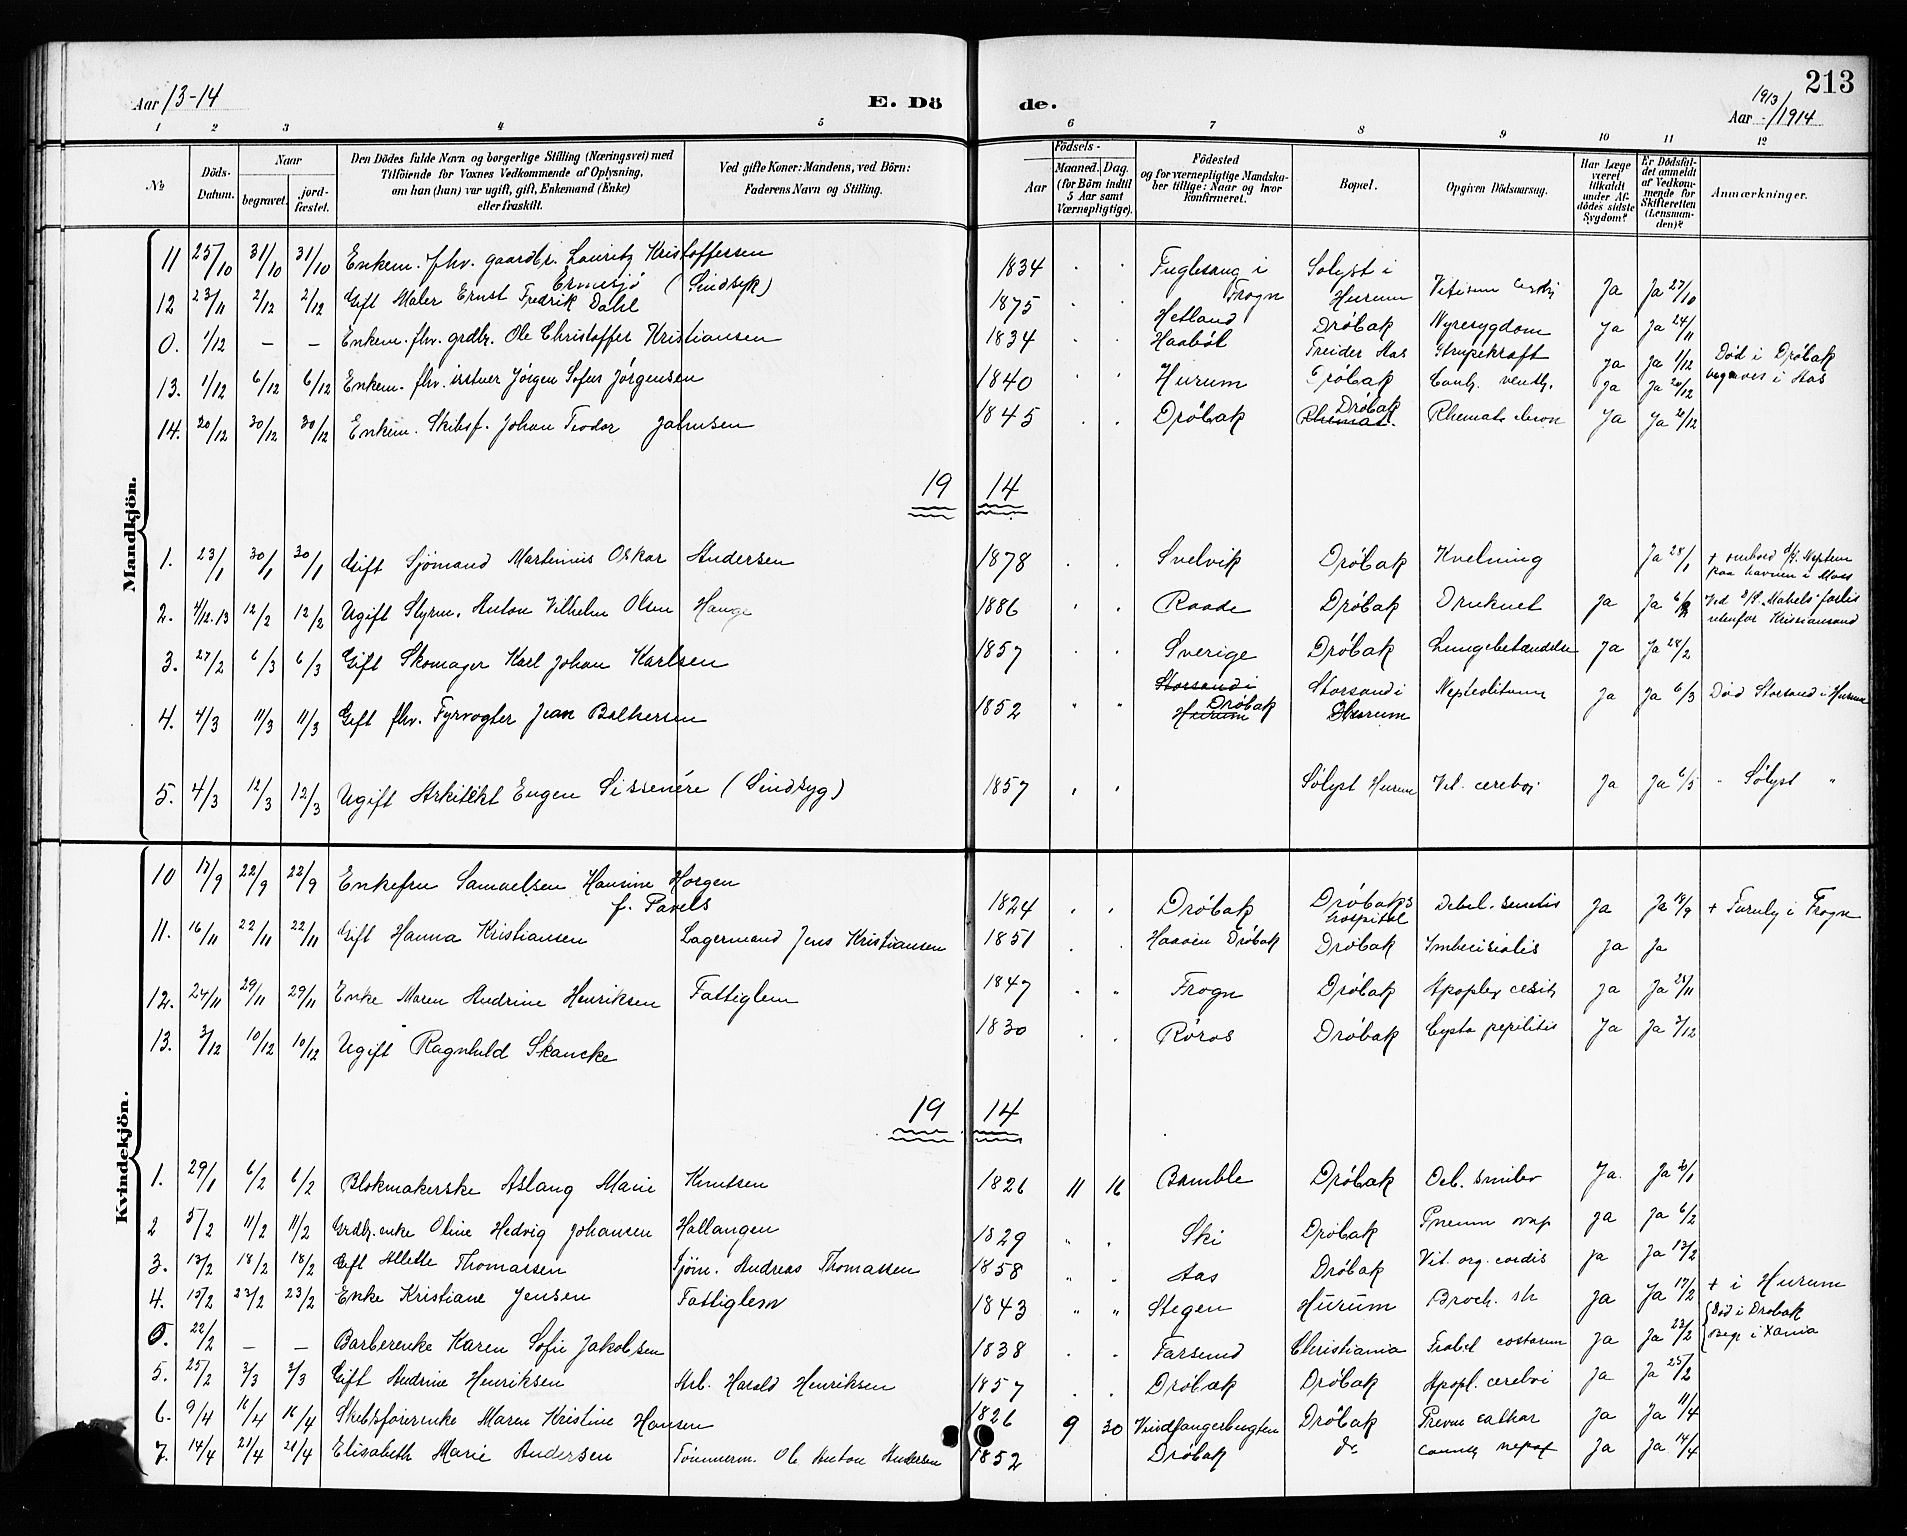 213
Aar 13-14
E. Dö de.
1913/1914
Aar
1 2 3 4 5 6 7 8 9 10 11 12
№
Döds-Datum.
Naar
begravet.
jord-fæstet.
Den Dödes fulde Navn og borgerlige Stilling (Næringsvei) med
Tilföiende for Voxnes Vedkommende af Oplysning,
om han (hun) var ugift, gift, Enkemand (Enke)
eller fraskilt.
Ved gifte Koner: Mandens, ved Börn:
Faderens Navn og Stilling.
Födsels-
Aar
Maaned. Dag.
(for Börn indtil
5 Aar samt
Værnepligtige).
Födested
og for værnepligtige Mandska-
ber tillige: Naar og hvor
konfirmeret.
Bopæl.
Opgiven Dödsaarsag.
Har Læge
været
tilkaldt
under Af-
dödes sidste
Sygdom?
Er Dödsfal-
det anmeldt
af Vedkom-
mende for
Skifteretten
(Lensman-
den)?
Anmærkninger.
Mandkjön.
11 25/10 31/10 31/10 Enkem. fhv. gaardbr. Lauritz Kristoffersen Ermesjø (Sindsyk) 1834 Fuglesang i Frogn Solyst i Hurum Ja Ja 27/10
12 23/11 2/12 2/12 Gift Maler Ernst Fredrik Dahl 1875 Hetland Drøbak Nyresygdom Ja Ja 24/11
0. 1/12 – – Enkem. fhv. grdbr. Ole Christoffer Kristiansen 1834 Haabøl Treider Aas Strupekræft Ja Ja 1/12 Død i Drøbak begraves i Aas
13. 1/12 6/12 6/12 Enkem. fhv. Jørgen Sofus Jørgensen 1840 Hurum Drøbak Ja Ja 20/12
14. 20/12 30/12 30/12 Enkem. Skibsf. Johan Teodor Jahnsen 1845 Drøbak Drøbak Rhemat. Ja Ja 20/12
19 14
1. 23/1 30/1 30/1 Gift Sjømand Martinius Oskar Andersen 1878 Svelvik Drøbak Kvelning Ja 28/1 + ombord d/s. Neptun paa havnen i Moss
2. 4/12.13 12/2 12/2 Ugift Styrm. Anton Vilhelm Olsen Hauge 1886 Raade Drøbak Druknet Ja Ja 6/2 Ved S/S. "Mabels" forlis utenfor Kristiansand
3. 27/2 6/3 6/3 Gift Skomager Karl Johan Karlsen 1857 Sverige Drøbak Lungebetændelse Ja Ja 28/2
4. 4/3 11/3 11/3 Gift fhv. Fyrvogter Jean Balkersen 1852 Storsand i Hurum Drøbak Storsand i Hurum Ja Ja 6/3 Død Storsand i Hurum
5. 4/3 12/3 12/3 Ugift Arkitekt Eugen Sissenére (Sindsyg) 1857 Sølyst Hurum Vit. cerebri Ja Ja 6/5 " Sølyst "
Kvindekjön.
10 17/9 22/9 22/9 Enkefru Samuelsen Hansine Horgen f. Pavels 1824 Drøbak Drøbaks hospital Debil. senilis Ja Ja 18/9 + Furuly i Frogn
11. 16/11 22/11 22/11 Gift Hanna Kristiansen Lagermand Jens Kristiansen 1851 Haaøen Drøbak Drøbak Ja Ja
12. 24/11 29/11 29/11 Enke Maren Andrine Henriksen Fattiglem 1847 Frogn Drøbak Apoplex Ja Ja 25/11
13. 3/12 10/12 10/12 Ugift Ragnhild Skancke 1830 Røros Drøbak Ja Ja 3/12
19 14
1. 29/1 6/2 6/2 Blokmakerske Aslaug Marie Knutsen 1826 11 16 Bamble Drøbak Deb. Ja. Ja 30/1
2 5/2 11/2 11/2 Grdbr.enke Oline Hedvig Johansen Hallangen 1829 Ski Drøbak Pneum Ja Ja 6/2
3. 13/2 18/2 18/2 Gift Allette Thomassen Sjøm. Andreas Thomassen 1858 Aas Drøbak Vit. org. cordis Ja Ja 13/2
4. 15/2 23/2 23/2 Enke Kristiane Jensen Fattiglem 1843 Stegen Hurum Ja Ja 17/2 + i Hurum
0. 22/2 – – Barberenke Karen Sofie Jakobsen 1838 Farsund Christiania Ja Ja 23/2 Død i Drøbak begr i Xania
5. 25/2 3/3 3/3 Gift Andrine Henriksen Arb. Harald Henriksen 1857 Drøbak Drøbak Apopl. cerebri Ja Ja 25/2
6. 9/4 16/4 16/4 Skibsførerenke Maren Kristine Hansen 1826 9 30 Vindfangerbugten Drøbak Ja Ja 11/4
7. 14/4 21/4 21/4 Elisabeth Marie Andersen Tømmerm. Ole Anton Andersen 1852 Drøbak do Ja Ja 14/4